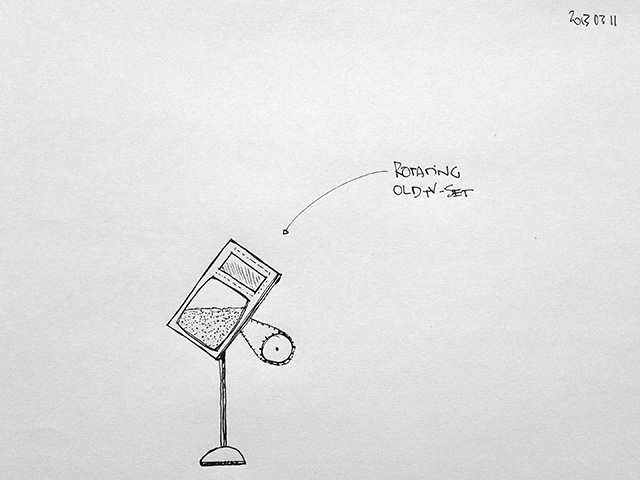 2013 03 11
ROTATING
OLD TV-SET